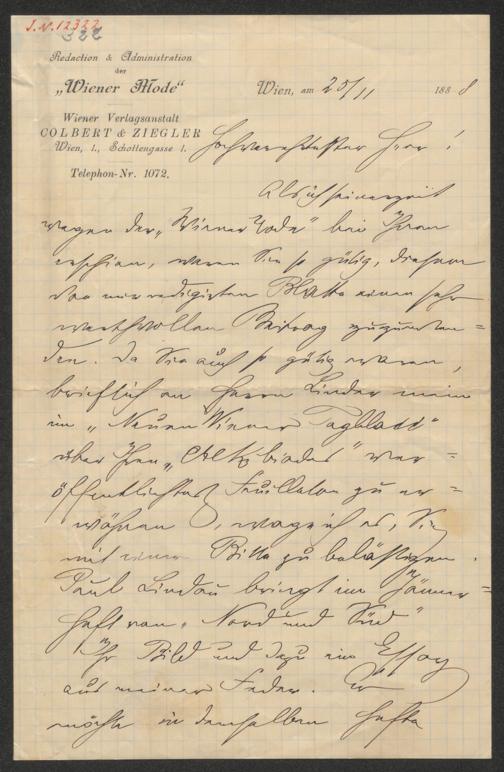 J.N. 12322
322
Redaction & Administration
der
„Wiener Mode“
Wiener Verlagsanstalt
COLBERT & ZIEGLER
Wien, I., Schottengasse 1.
Telephon-Nr. 1072.
Wien, am 25/11 1888
Hochverehrtester Herr!
Als ich seinerzeit
wegen der „Wiener Mode“ bei Ihnen
erschien, waren Sie so gütig, diesem
von mir redigirten Blatte einen sehr
werthvollen Beitrag zuzuwen=
den. Da Sie auch so gütig waren,
brieflich an Herrn Lindau mein
im „Neuen Wiener Tagblatt“
über Ihren „Alkibiades“ ver=
öffentlichtes Feuilleton zu er=
wähnen, wage ich es, Sie
mit einer Bitte zu belästigen.
Paul Lindau bringt im Jänner=
heft von „Nord und Süd“
Ihr Bild und dazu ein Essay
aus meiner Feder. Er
möchte in demselben Hefte